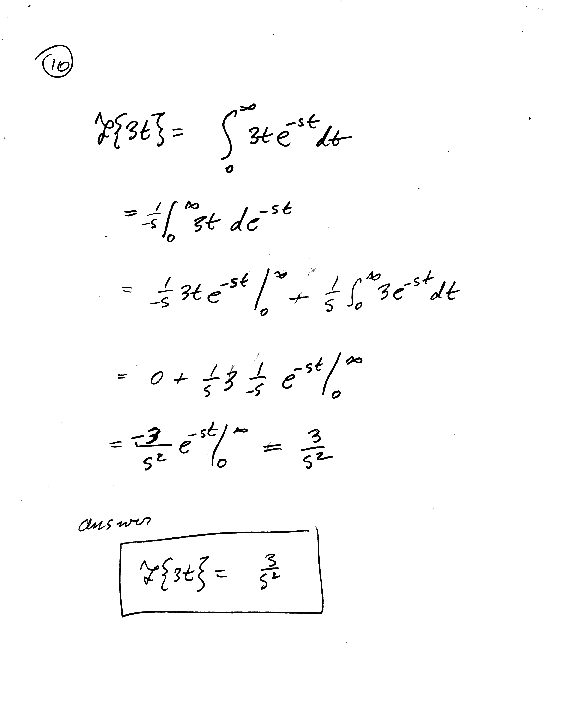 10
ℒ{3t} = ∫₀^∞ 3t e^-st dt
= 1/-s ∫₀^∞ 3t de^-st
= 1/-s 3t e^-st |₀^∞ + 1/s ∫₀^∞ 3e^-st dt
= 0 + 1/s 3 1/-s e^-st |₀^∞
= -3/s² e^-st |₀^∞ = 3/s²
answer
ℒ{3t} = 3/s²